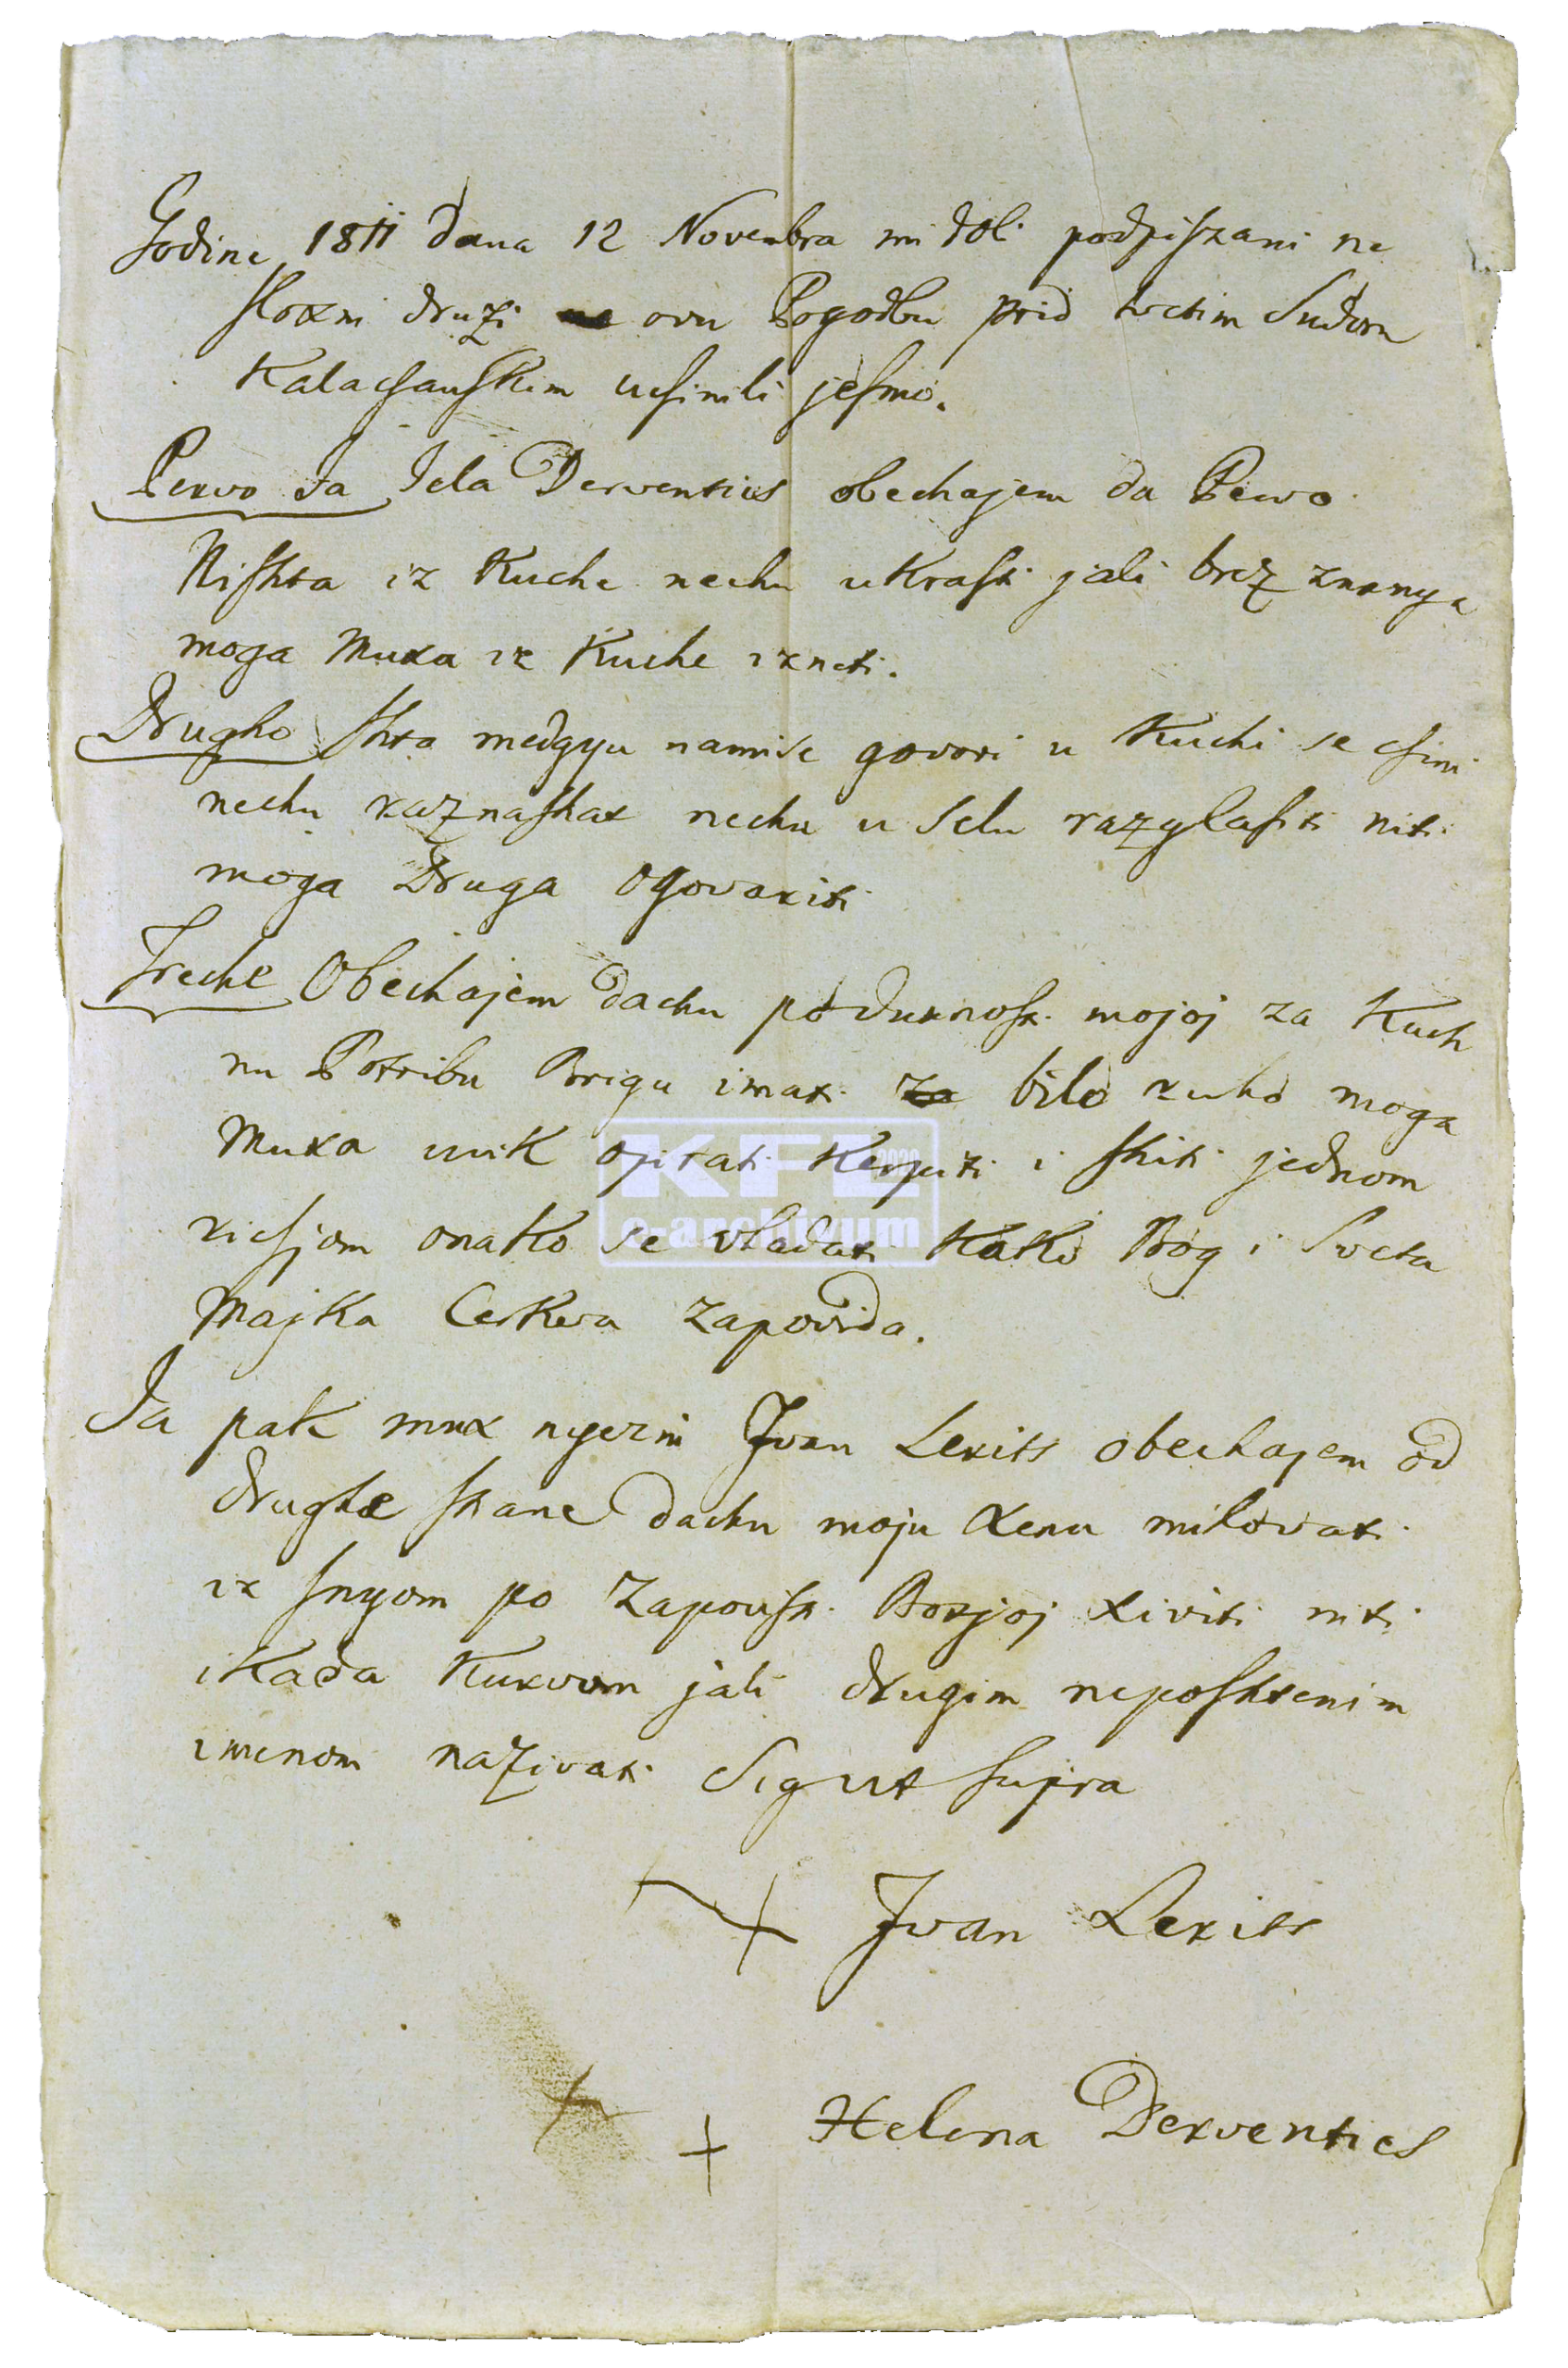 Godine 1811 dana 12 Novembra mi doli podpiszani ne
sloxni druzi ovu Pogodbu prid svetim Sudom
Kalacsanskim ucsinili jesmo.
Pervo Ja Jela Derventics obechajem da Pervo
Nishta iz Kuche nechu ukrasti jali brez znanya
moga Muxa iz Kuche izneti.
Drugho Shta medgyu namise govori u Kuchi se csini
nechu raznashat nechu u Selu razglasiti niti
moga Druga ogovariti
Treche Obechajem dachu po duxnosti mojoj za Kuch
nu Potribu Brigu imati za bilo ruho moga
Muxa uvik opirati Kerpiti i shiti jednom
ricsjom onako se vladati Kako Bog i Sveta
Majka Cerkva zapovida.
Ja pak mux nyezin Ivan Lerits obechajem od
drughe strane dachu moju xenu milovati
iz snyom po zapovisti Boxjoj xiviti niti
ikada Kurvom jali drugim neposhtenim
imenom nazivati Sig ut supra
Ivan Lerits
Helena Derventics
KFL 2020
e-archivum